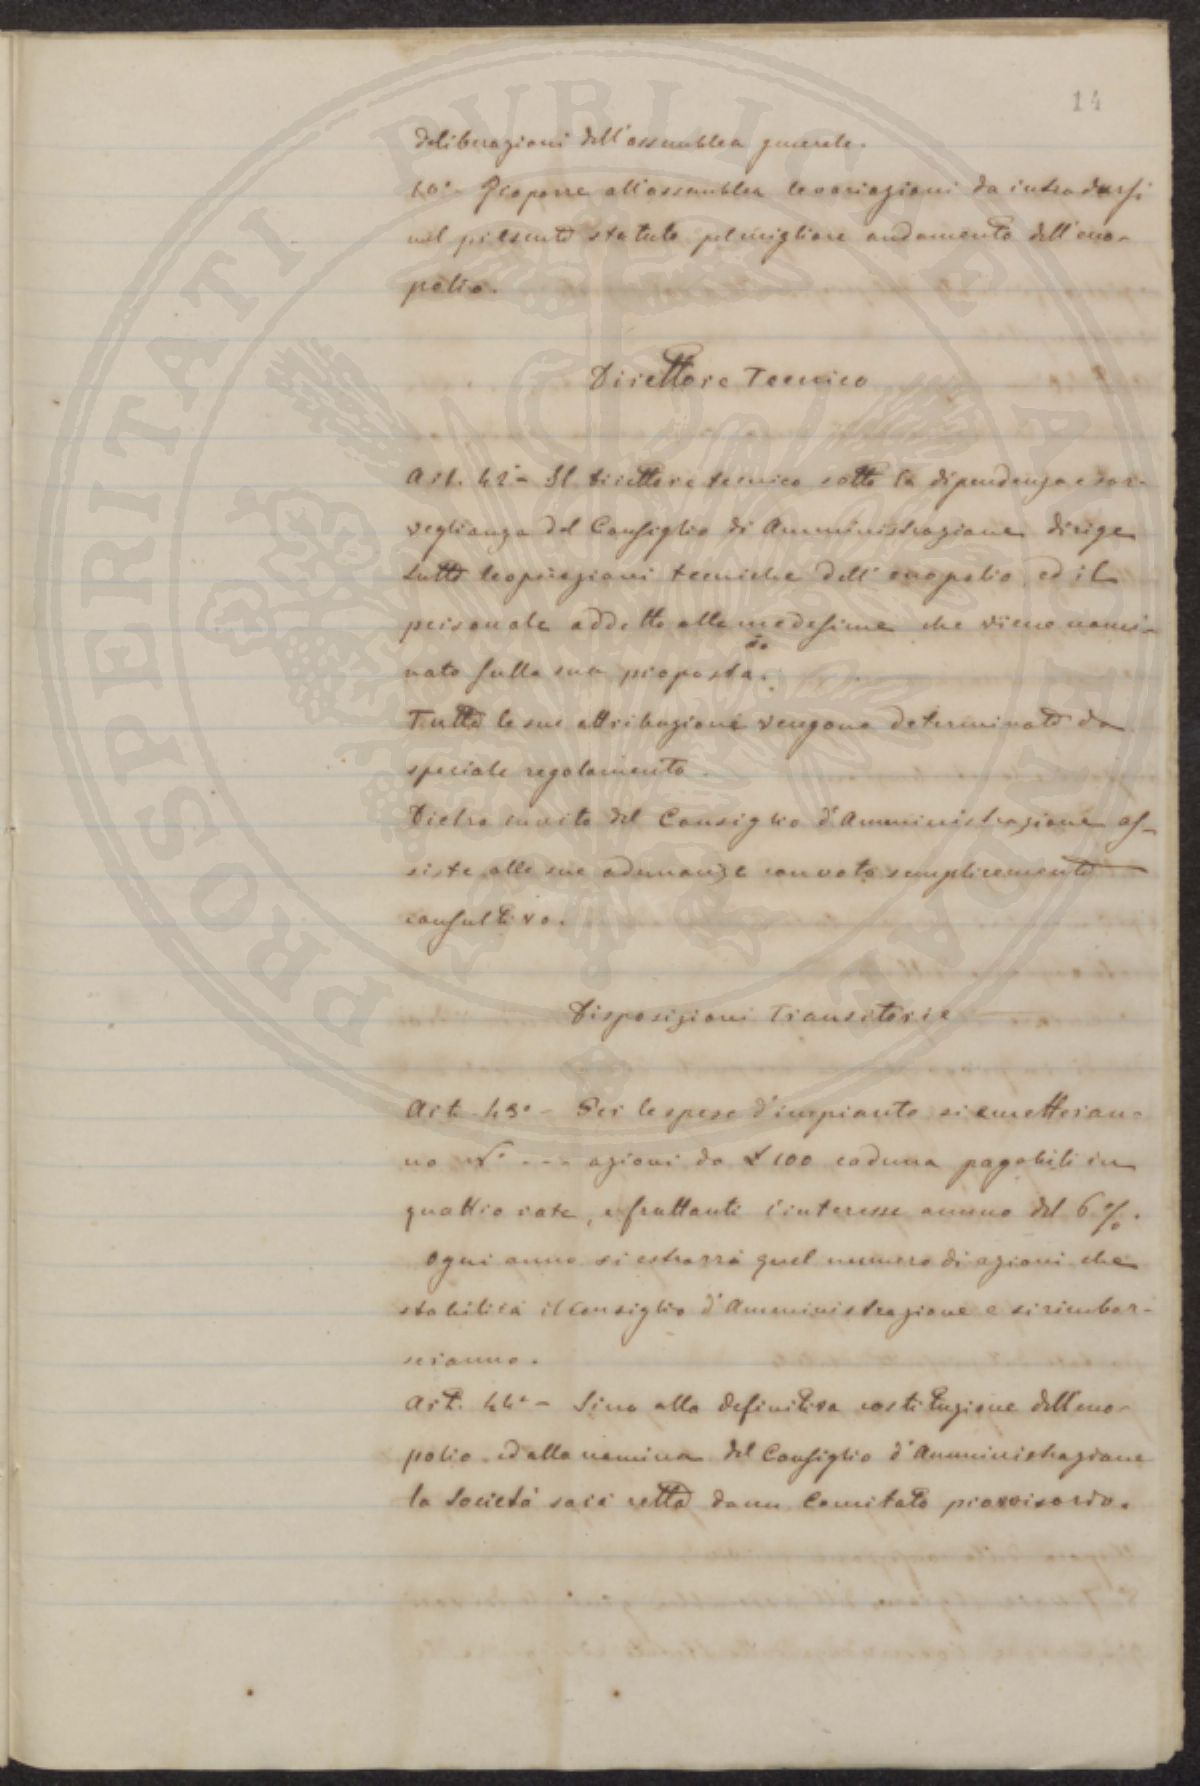 14
deliberazioni dell'assemblea generale.
10°- Proporre all'assemblea le variazioni da introdursi
nel presente statuto pel migliore andamento dell'eno-
polio.
Direttore Tecnico
Art. 42°- Il direttore tecnico sotto la dipendenza e sor-
veglianza del Consiglio di Amministrazione dirige
tutte le operazioni tecniche dell'enopolio ed il
personale addetto alle medesime che viene nomi-
nato sulla sua proposta.
Tutte le sue attribuzioni vengono determinate da
speciale regolamento.
Dietro invito del Consiglio d'Amministrazione as-
siste alle sue adunanze con voto semplicemente
consultivo.
Disposizioni Transitorie
Art. 43°- Per le spese d'impianto si emetteran-
no N° --- azioni da £ 100 caduna pagabili in
quattro rate, e fruttanti l'interesse annuo del 6%.
Ogni anno si estrarrà quel numero di azioni che
stabilirà il Consiglio d'Amministrazione e si rimbor-
seranno.
Art. 44°- Sino alla definitiva costituzione dell'eno-
polio ed alla nomina del Consiglio d'Amministrazione
la Società sarà retta da un Comitato provvisorio.
PROSPERITATI PUBLICAE AUGENDAE